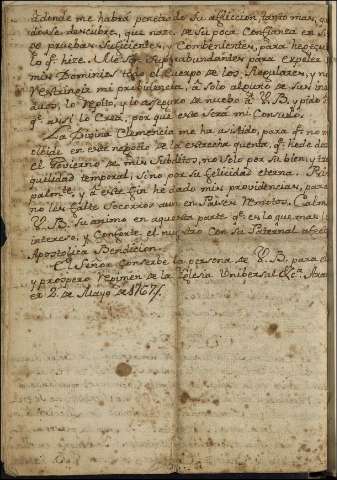 adonde me habrá penetrado su afliccion, tanto mas, qu
dose descubre, que naze de su poca Confianza en si
so pruebas Suficientes, y Combenientes, para hejecu
lo qe. hize. Mie son Suprabundantes para expeler
mis Dominios todo el cuerpo de los Regulares, y no
restringir mi providencia, à solo alguno de sus indi
duos, lo repito, y lo aseguro de nuebo à V. B. y pido
qe. assi lo Crea, por que este sera mi Consuelo.
La Divina Clemencia me ha asistido, para qe. no m
olbide en este negocio de la estrecha quenta, qe. hede da
el Govierno de mis Subditos, no solo por su bien, y tra
quilidad temporal; Sino por su felicidad eterna.
palmente, y à este fin he dado mis providencias, para
no les falte Socorros aun en Paises remotos. Calme
V. B. su animo en aquesta parte qe. es lo que mas
intereso, y Conforte el nuestro con su Paternal afecto
Apostolica Bendicion.
El Señor Conserbe la persona de V. B. para el
y prospero regimen de la Iglesia Unibersal &ca. Aran
ez 2. de Mayo de 1767.